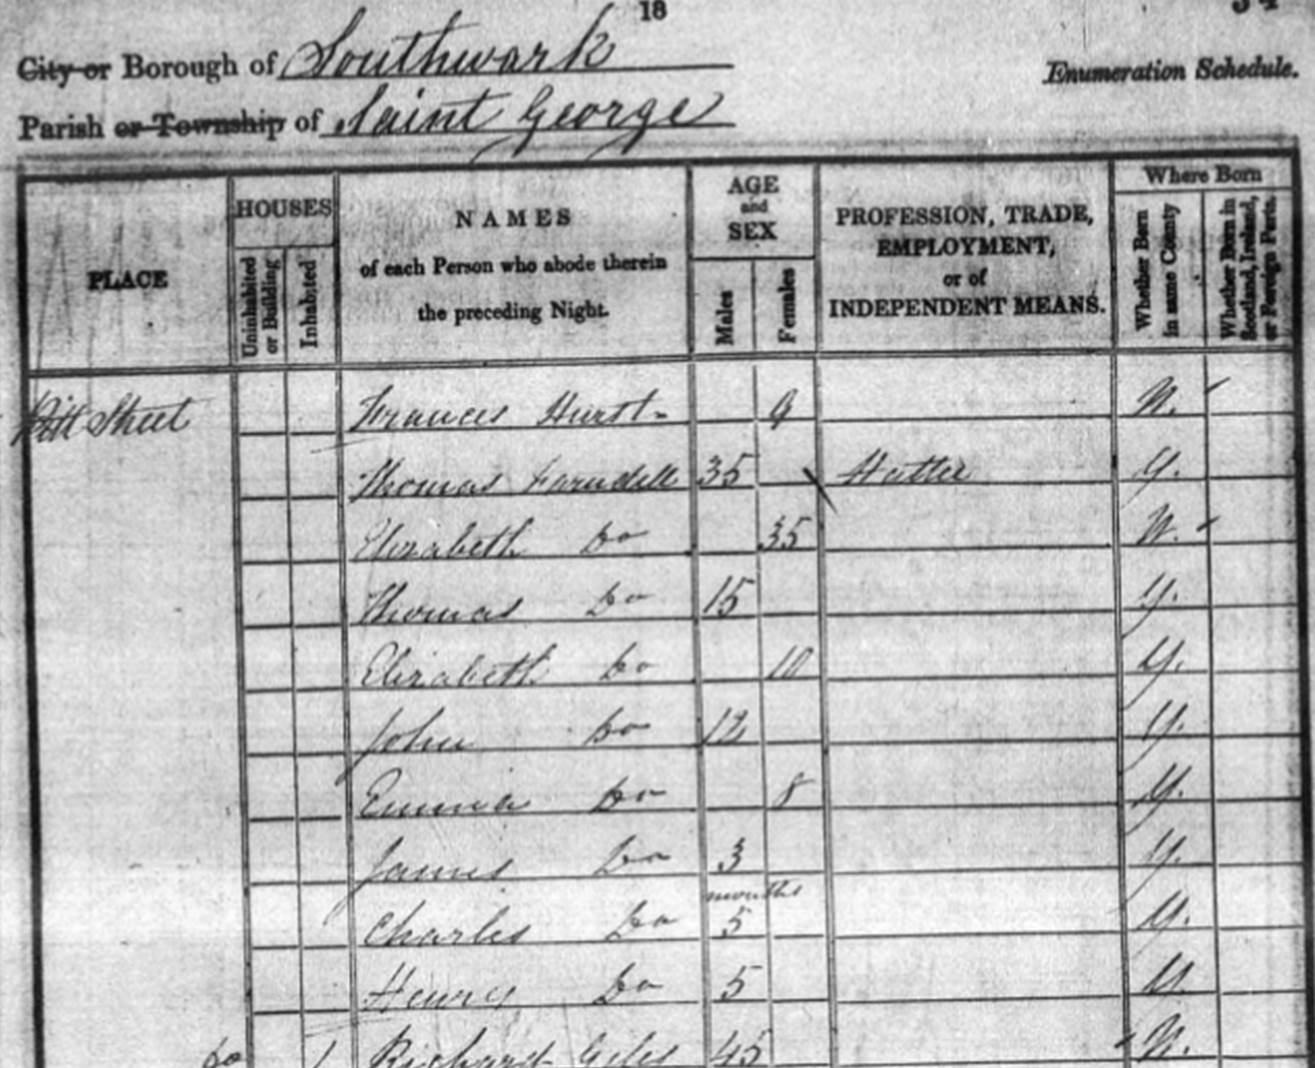 18
City or Borough of Southwark
Enumeration Schedule.
Parish or Township of Saint George
PLACE
HOUSES
Uninhabited or Building
Inhabited
NAMES
of each Person who abode therein
the preceding Night.
AGE
and
SEX
Males
Females
PROFESSION, TRADE,
EMPLOYMENT,
or of
INDEPENDENT MEANS.
Where Born
Whether Born in same County
Whether Born in Scotland, Ireland, or Foreign Parts.
Pitt Street Frances Hurst 9 N.
Thomas Farndell 35 Hatter Y.
Elizabeth Do 35 N.
Thomas Do 15 Y.
Elizabeth Do 10 Y.
John Do 12 Y.
Emma Do 8 Y.
James Do 3 Y.
months
Charles Do 5 Y.
Henry Do 5 Y
Do 1 Richard Giles 45 N.